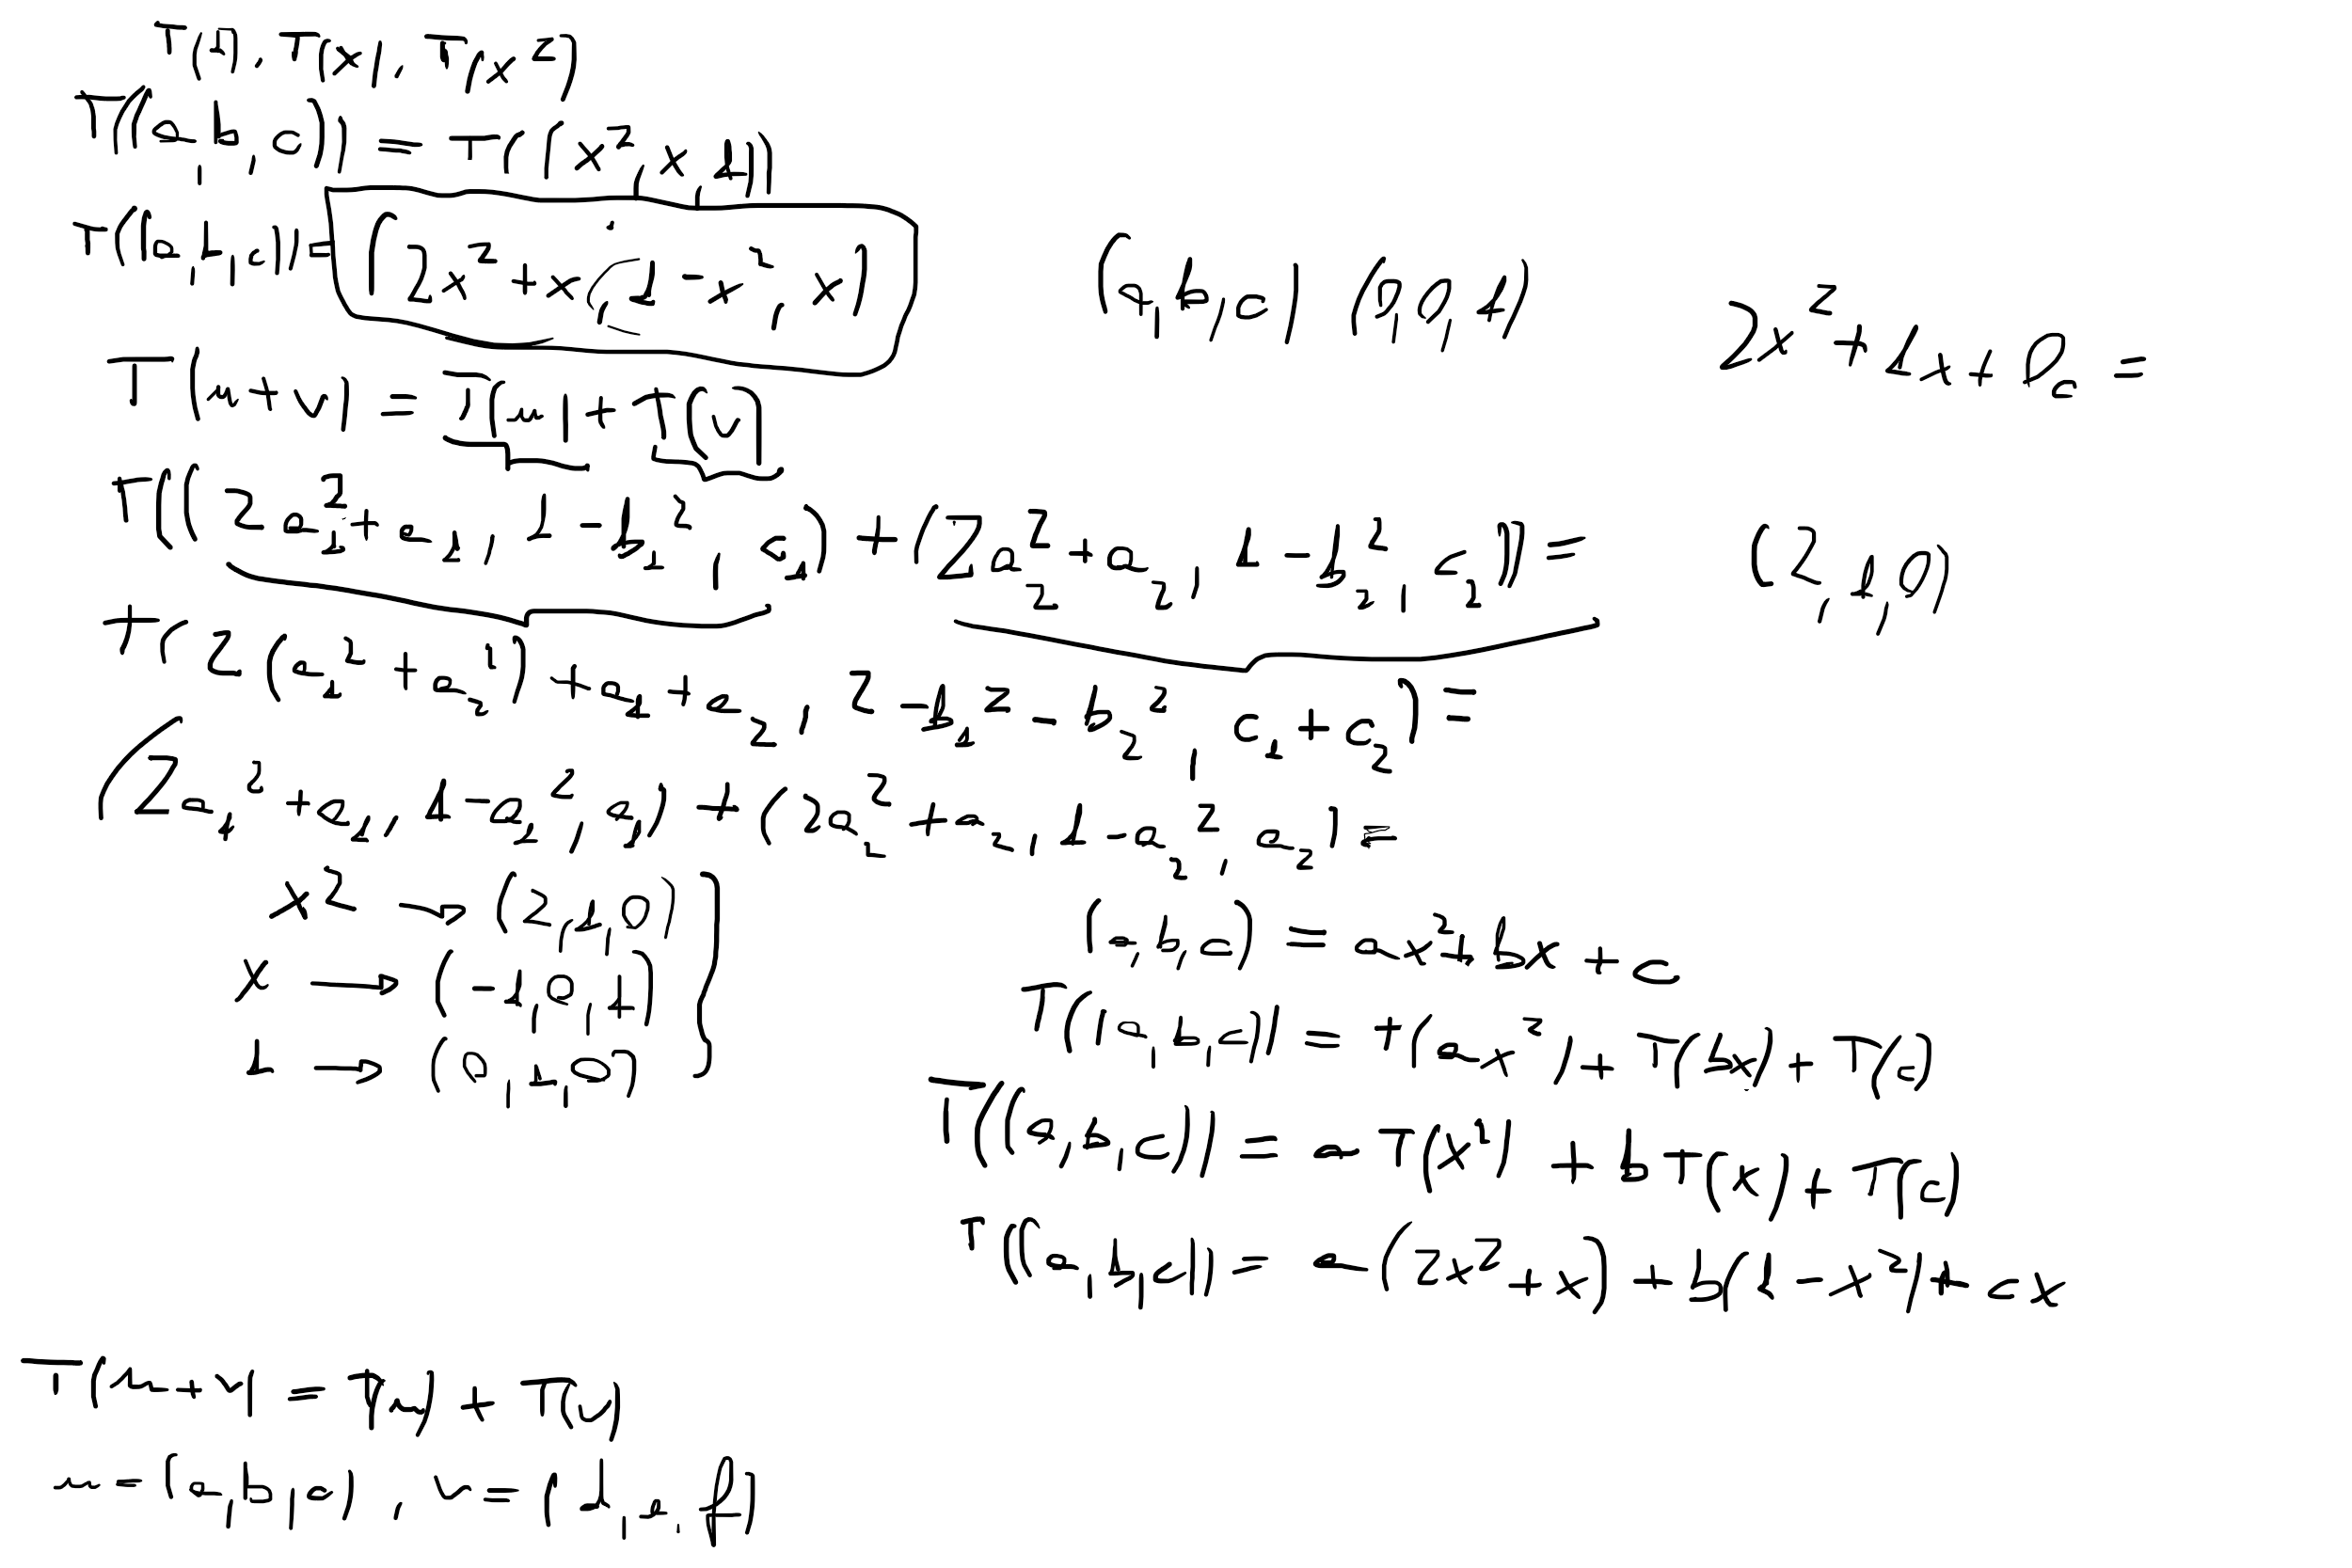 T(1), T(x), T(x²)
T((a,b,c)) = T((x²,x,1))
T((a,b,c)) = (2x²+x, 1-x², x)
(a,b,c) (0,0,1)
2x²+1x+0 =
T(u+v) = T(u)+T(v)
T((2a₁²+a₁, 1-b₁², c₁)+(2a₂²+a₂, 1-b₂², c₂)) =
(2,1,0)
T(2(a₁²+a₂²)+a₁+a₂, 2-b₁²-b₂², c₁+c₂) =
(2a₁²+a₁, 1-a₁², a₁)+(2a₂²+a₂, 1-a₂², a₂) =
x² → (2,1,0)
x → (-1,0,1)
1 → (0,1,0)
(a,b,c) = ax²+bx+c
T((a,b,c)) = T(ax²)+T(bx)+T(c)
T((a,b,c)) = aT(x²)+bT(x)+T(c)
T((a,b,c)) = a(2x²+x)+b(1-x²)+cx
T(u+v) = T(u)+T(v)
u=(a,b,c), v=(d,e,f)